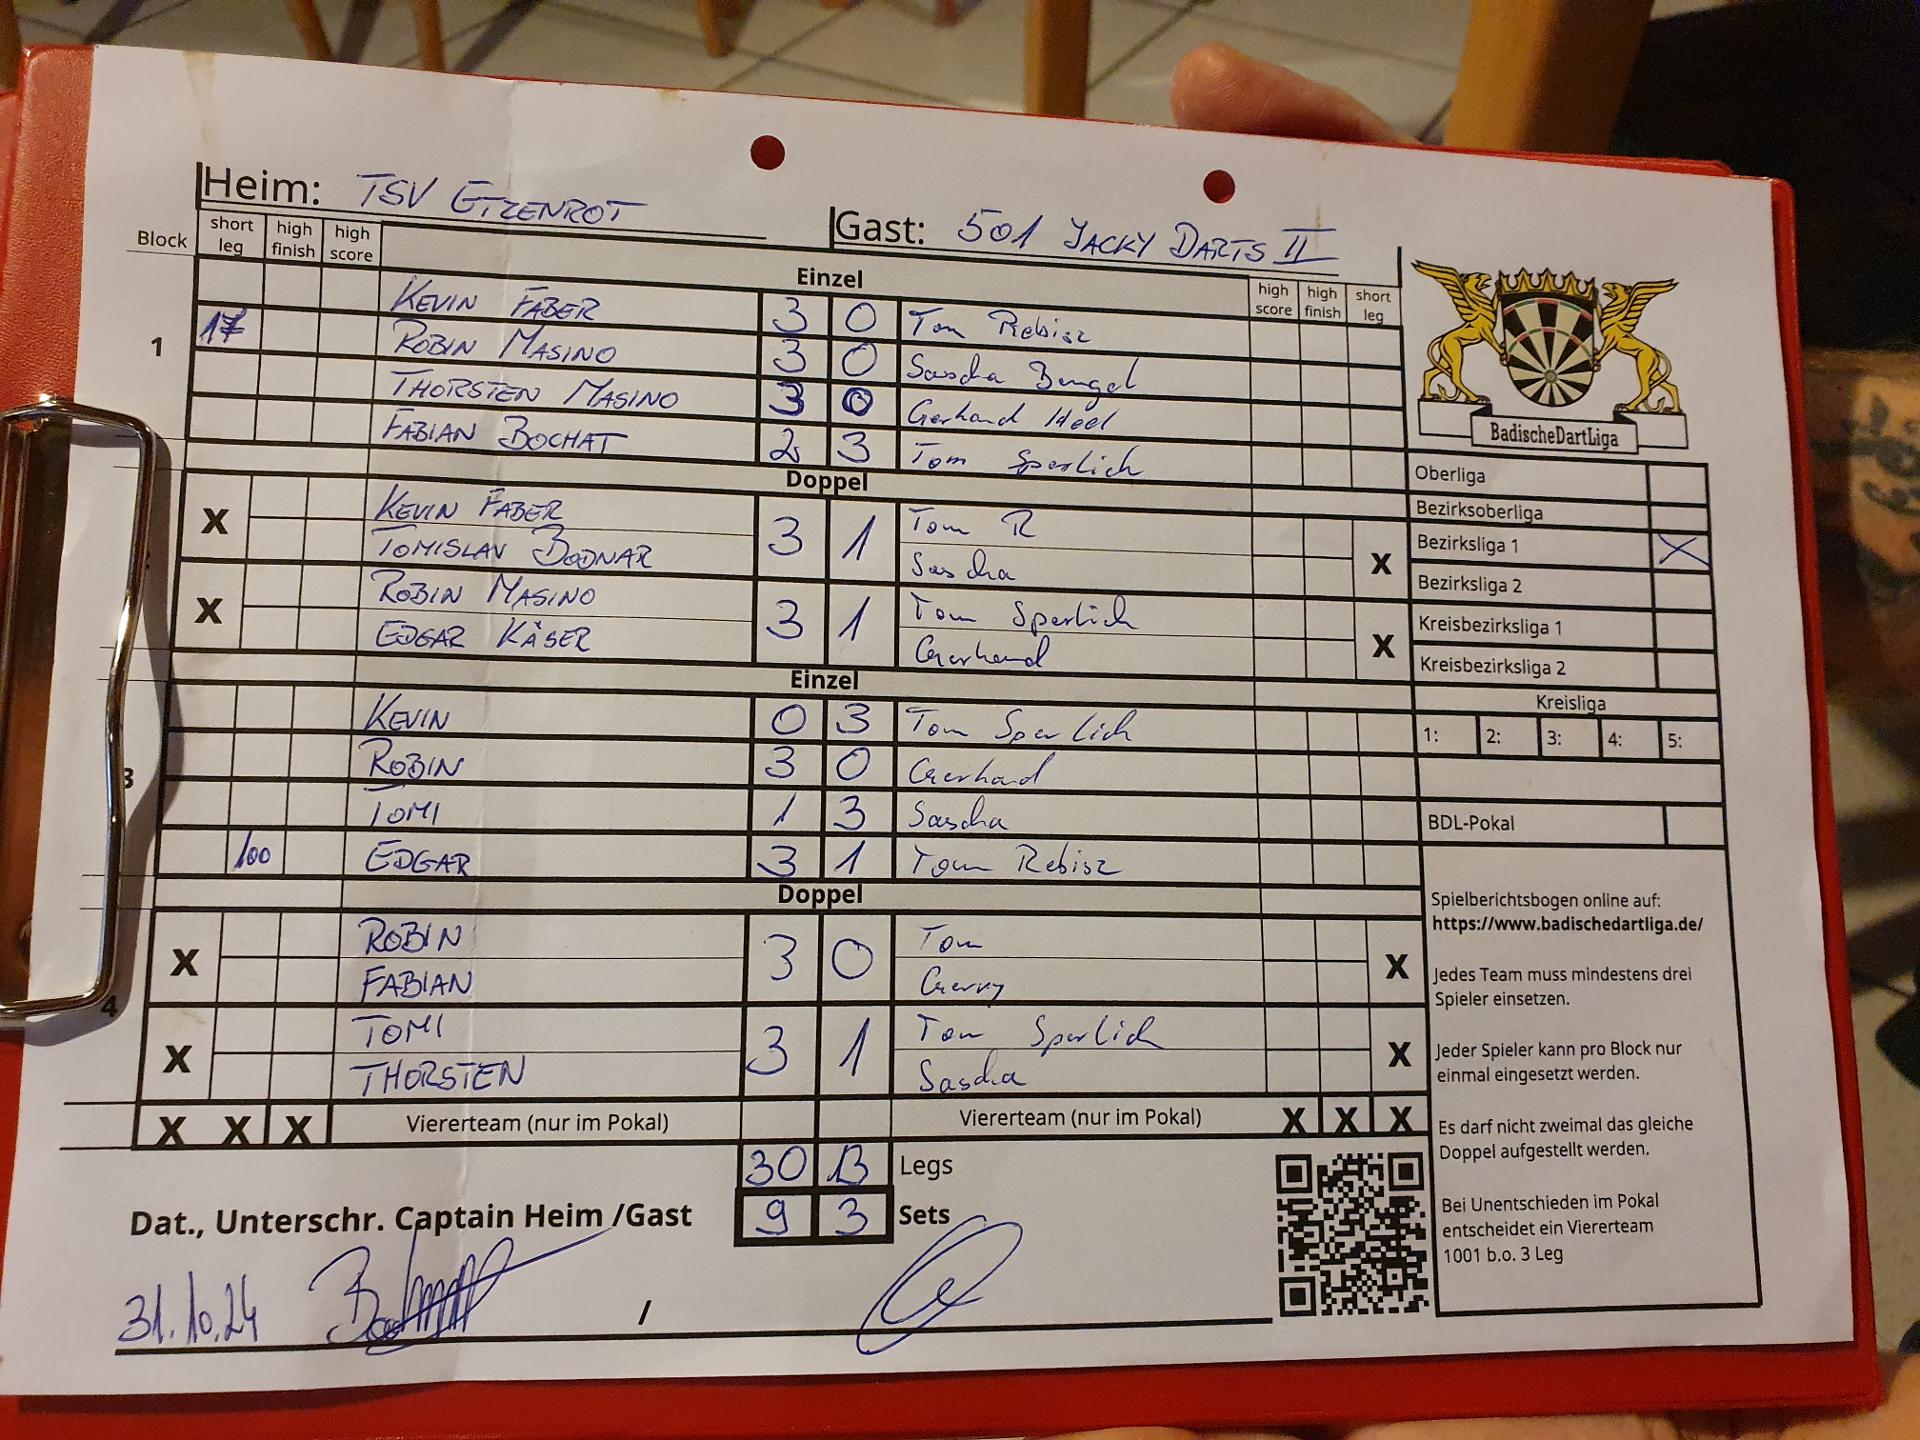 Heim: TSV ETZENROT
Gast: 501 JACKY DARTS II
Block short leg high finish high score
Einzel
high score high finish short leg
KEVIN FABER 3 0 Tom Rebisz
1 17 ROBIN MASINO 3 0 Sascha Bengel
THORSTEN MASINO 3 0 Gerhard
FABIAN BOCHAT 2 3 Tom Sperlich
Doppel
X KEVIN FABER 3 1 Tom R X
TOMISLAV BODNAR Sascha
X ROBIN MASINO 3 1 Tom Sperlich X
EDGAR KÄSER Gerhard
Einzel
KEVIN 0 3 Tom Sperlich
3 ROBIN 3 0 Gerhard
TOMI 1 3 Sascha
100 EDGAR 3 1 Tom Rebisz
Doppel
X ROBIN 3 0 Tom X
FABIAN Gerry
4
X TOMI 3 1 Tom Sperlich X
THORSTEN Sascha
X X X Viererteam (nur im Pokal) Viererteam (nur im Pokal) X X X
30 13 Legs
Dat., Unterschr. Captain Heim /Gast 9 3 Sets
31.10.24 /
BadischeDartLiga
Oberliga
Bezirksoberliga
Bezirksliga 1 X
Bezirksliga 2
Kreisbezirksliga 1
Kreisbezirksliga 2
Kreisliga
1: 2: 3: 4: 5:
BDL-Pokal
Spielberichtsbogen online auf:
https://www.badischedartliga.de/
Jedes Team muss mindestens drei
Spieler einsetzen.
Jeder Spieler kann pro Block nur
einmal eingesetzt werden.
Es darf nicht zweimal das gleiche
Doppel aufgestellt werden.
Bei Unentschieden im Pokal
entscheidet ein Viererteam
1001 b.o. 3 Leg